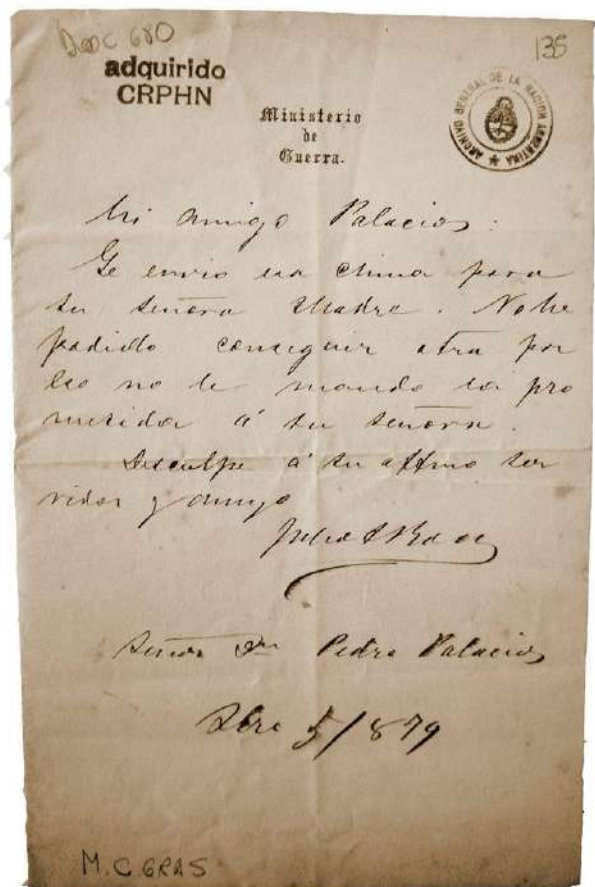 Doc 680
135
adquirido
CRPHN
ARCHIVO GENERAL DE LA NACION ARGENTINA
Ministerio
de
Guerra.
Mi amigo Palacios:
Le envio esa china para
su señora Madre. No he
podido conseguir otra por
eso no le mando la pro
metida á su señora.
Disculpe á su affmo ser
vidor y amigo
Julio A Roca
Señor Dn Pedro Palacios
5/879
M.C GRAS